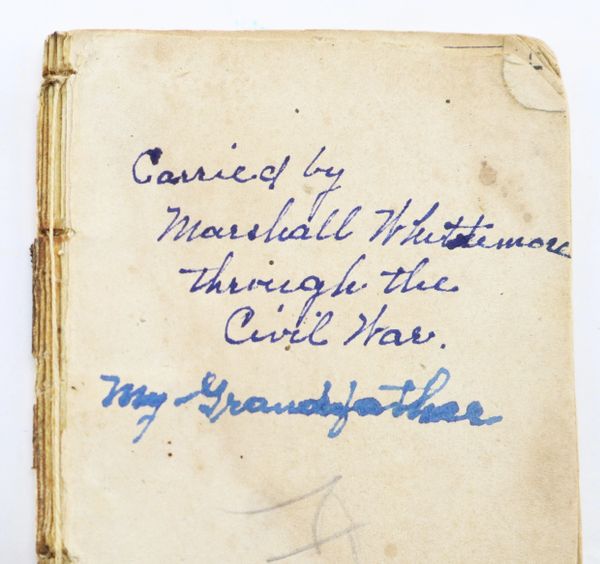 Carried by
Marshall Whittemore
through the
Civil War.
My Grandfather